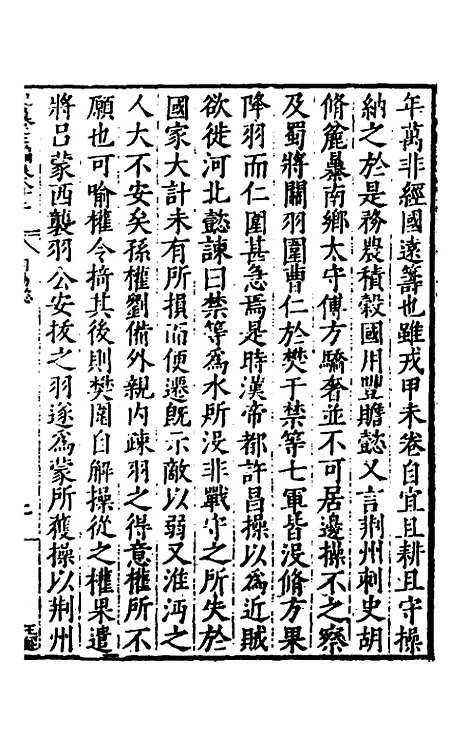 年萬非經國遠籌也雖戎甲未卷自宜且耕且守操
納之於是務農積穀國用豐贍懿又言荆州刺史胡
脩麄暴南鄉太守傅方驕奢並不可居邊操不之察
及蜀將關羽圍曹仁於樊于禁等七軍皆没脩方果
降羽而仁圍甚急焉是時漢帝都許昌操以為近賊
欲徙河北懿諫曰禁等為水所没非戰守之所失於
國家大計未有所損而便遷旣示敵以弱又淮沔之
人大不安矣孫權劉備外親内疎羽之得意權所不
願也可喻權令掎其後則樊圍自解操從之權果遣
將吕蒙西襲羽公安拔之羽遂為蒙所獲操以荆州